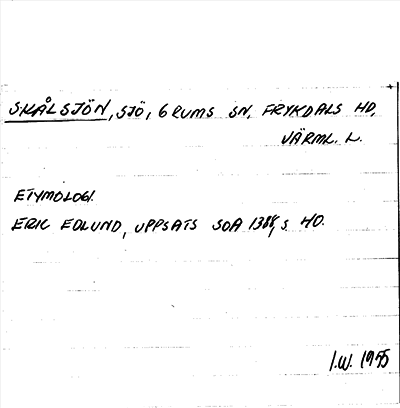 SKÅLSJÖN, SJÖ, GRUMS SN, FRYKDALS HD,
VÄRML. L.
ETYMOLOGI.
ERIC EDLUND, UPPSATS SOA 1388, S 40.
I.W. 1955